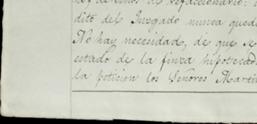 de refaccionario:
dito del Juzgado nunca qued
No hay necesidad, de que se
estado de la finca hipotecad
la peticion los Señores Marti